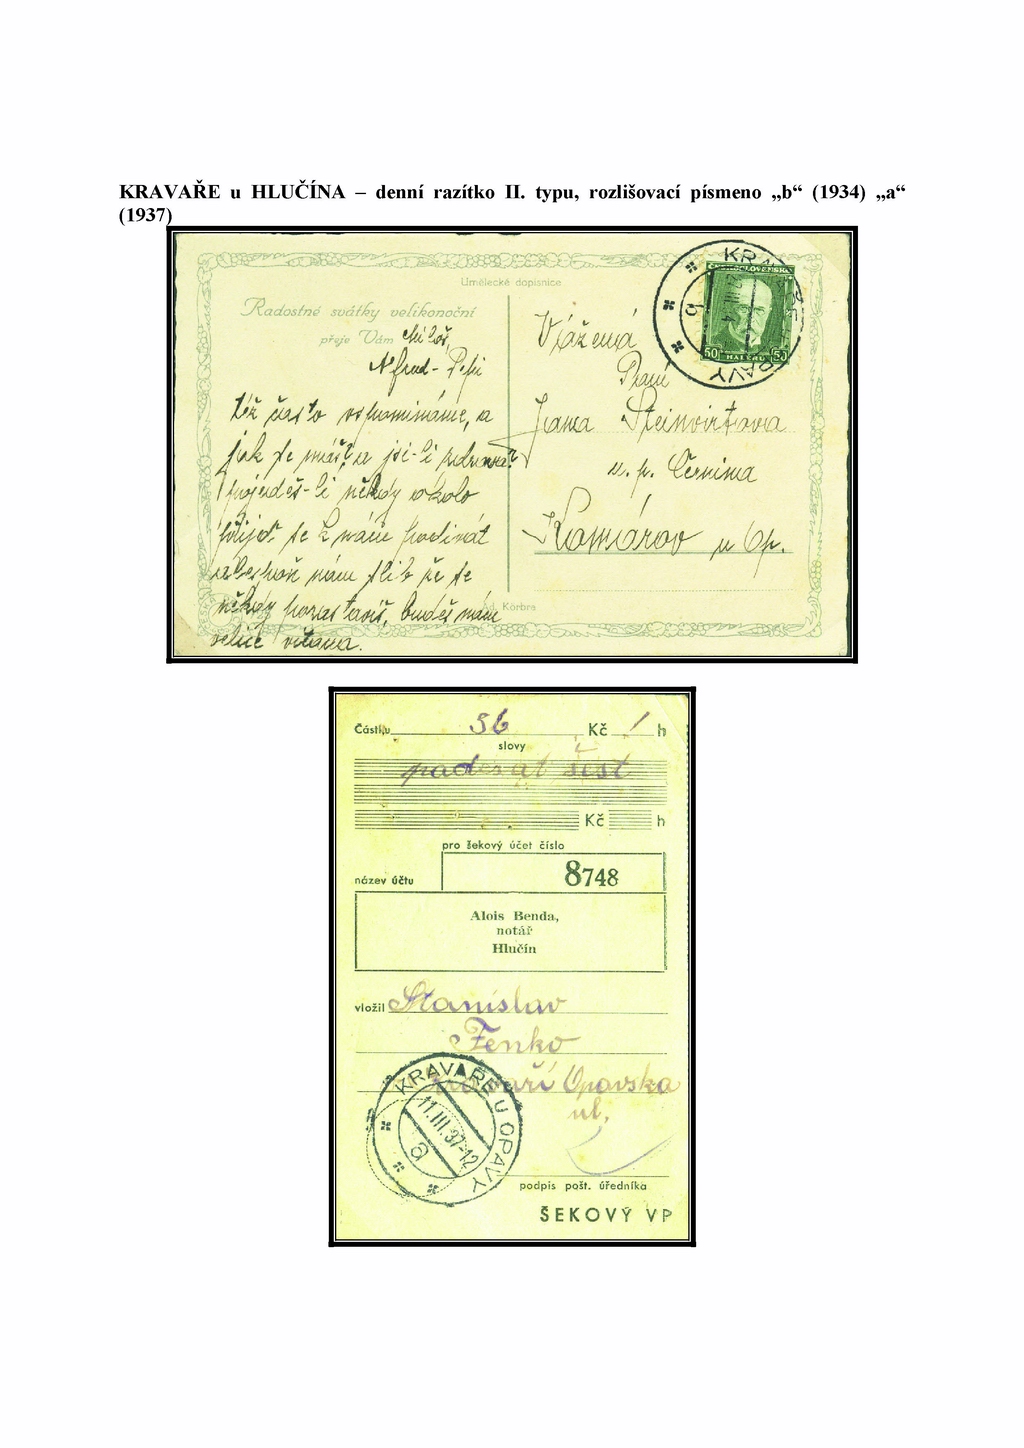 KRAVAŘE u HLUČÍNA – denní razítko II. typu, rozlišovací písmeno „b“ (1934) „a“
(1937)
Umělecké dopisnice
Radostné svátky velikonoční
přeje Vám Miloš,
Pepi
též často vspomínáme, a
jak se máš? a jsi-li zdravá?
pojedeš-li někdy okolo
přijď se k nám podívat
alespoň nám slib že se
někdy pozastavíš, budeš nám
velice vítána.
Vážená
Paní
Steinvirtova
u. p. Černína
Komárov u Op.
Körbra
ČESKOSLOVENSKO
50 HALÉŘŮ 50
b
OPAVY
Částku 56 Kč / h
slovy
padesát šest
Kč h
pro šekový účet číslo
název účtu 8748
Alois Benda,
notář
Hlučín
vložil Stanislav
Fenko
Opavska
ul.
KRAVAŘE U OPAVY
11.III.37-12
a
podpis pošt. úředníka
ŠEKOVÝ VP